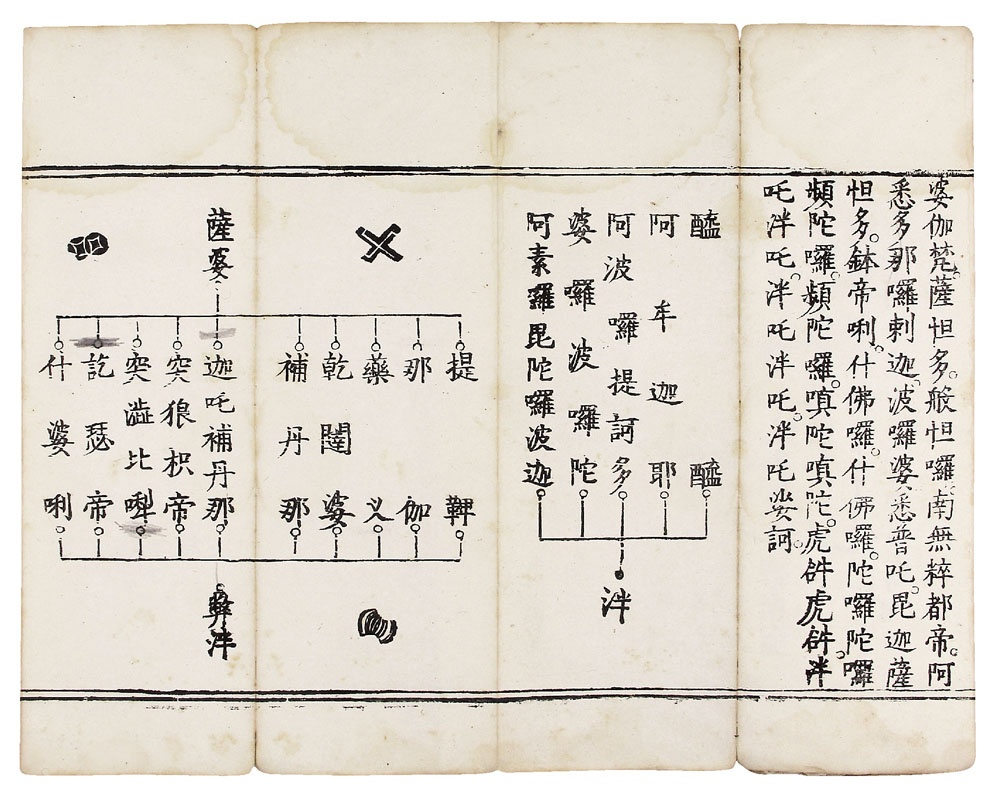 婆伽梵。薩怛多。般怛囉南無粹都帝。阿
悉多那囉剌迦。波囉婆悉普吒。毘迦薩
怛多。鉢帝唎。什佛囉。什佛囉。陀囉陀囉
頻陀囉。頻陀囉。嗔陀嗔陀。虎𤙖虎𤙖泮
吒泮吒。泮吒泮吒。泮吒娑訶。
醯醯
阿牟迦耶
阿波囉提訶多
婆囉波囉陀
阿素囉毘陀囉波迦
泮
薩婆
提鞞
那伽
藥义
乾闥婆
補丹那
迦吒補丹那
突狼枳帝
突澁比㘑
訖瑟帝
什婆唎
弊泮